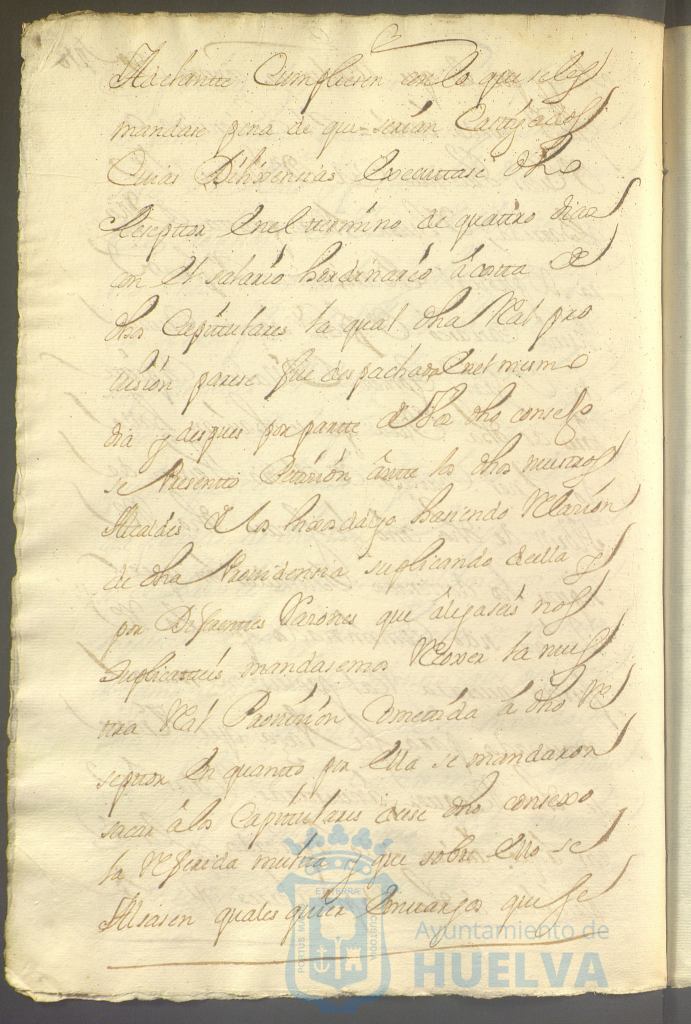 Adelante Cumpliesen en lo que se les
mandare pena de que serian Castigados
Cuias Dilixencias Executtase dho
Rezepttor En el termino de quattro dias
con El salario hordinario â costa de
dhos Capitulares la qual dha Real pro
vision parese fue despachada En el mismo
dia y despues por partte de Ese dho consejo
se Presentto Petision antte los dhos nuestros
Alcaldes de los hixosdalgo haciendo Relasion
de dha Providensia suplicando de ella y
por Diferentes Rasones que alegaseis nos
Suplicasteis mandasemos Recoxer la nues
ttra Real Provision Cometida â dho Re
septtor En quantto por Ella se mandaron
sacar â los Capitulares de ese dho consexo
la Referida multta y que sobre Ello se
Alsasen quales quier Envargos que se
Ayuntamiento de
HUELVA